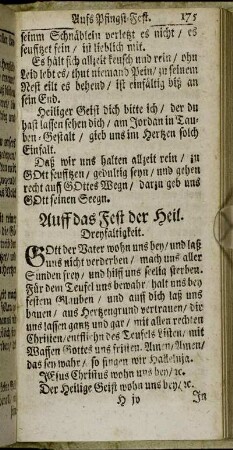 Auffs Pfingst-Fest. 175
seinm Schnäblein verletzt es nicht / es
seufftzet fein / ist lieblich mit.
Es hält sich allzeit keusch und rein / ohn
Leid lebt es / thut niemand Pein / zu seinem
Nest eilt es behend / ist einfältig biß an
sein End.
Heiliger Geist dich bitte ich / der du
hast lassen sehen dich / am Jordan in Tau-
ben-Gestalt / gieb uns im Hertzen solch
Einfalt.
Daß wir uns halten allzeit rein / zu
GOtt seufftzen / gedultig seyn / und gehen
recht auff GOttes Wegn / darzu geb uns
GOtt seinen Seegn.
Auff das Fest der Heil.
Dreyfaltigkeit.
GOtt der Vater wohn uns bey / und laß
uns nicht verderben / mach uns aller
Sünden frey / und hilff uns seelig sterben.
Für dem Teufel uns bewahr / halt uns bey
festem Glauben / und auf dich laß uns
bauen / aus Hertzengrund vertrauen / dir
uns lassen gantz und gar / mit allen rechten
Christen / entfliehn des Teufels Listen / mit
Waffen Gottes uns fristen. Amen / Amen /
das sey wahr / so singen wir Halleluja.
JEsus Christus wohn uns bey / ꝛc.
Der Heilige Geist wohn uns bey / ꝛc.
H iv In